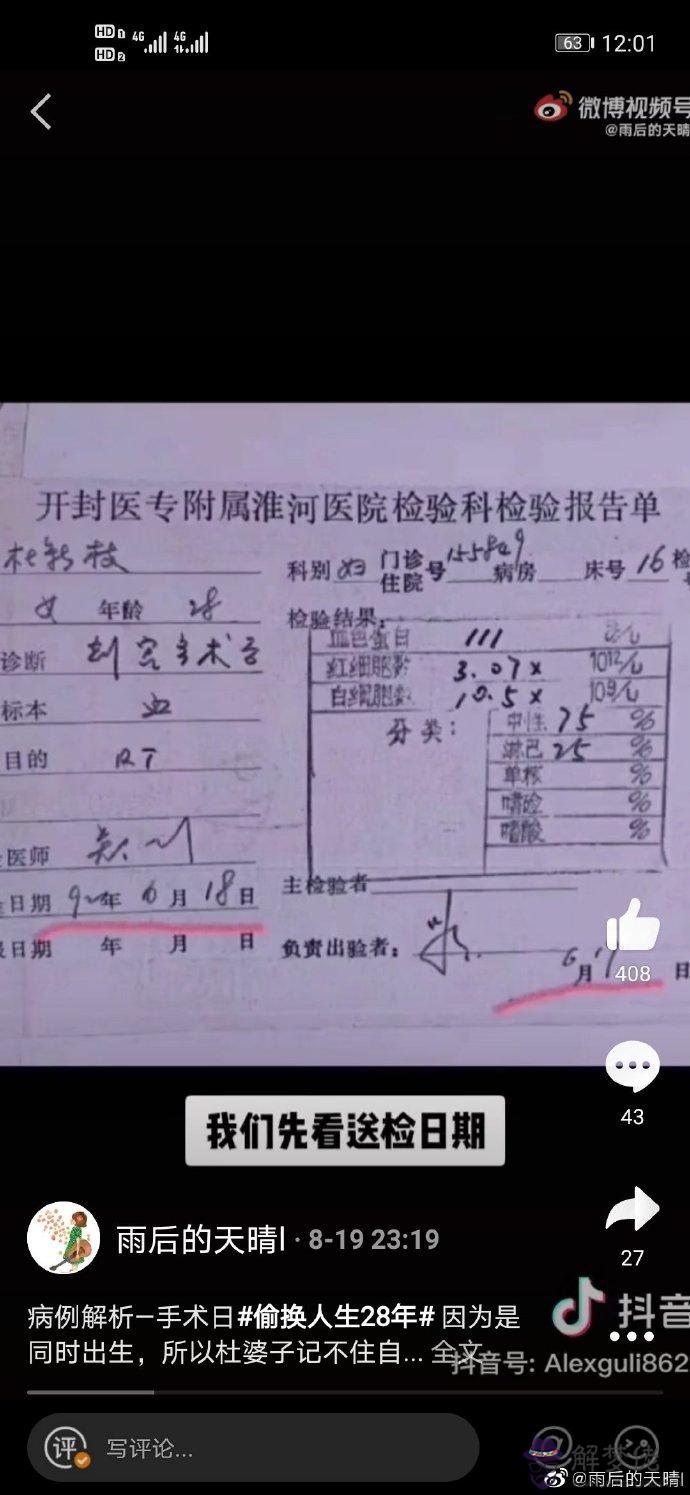 HD 1 4G 4G
HD 2
63 12:01
微博视频号
@雨后的天晴
开封医专附属淮河医院检验科检验报告单
杜新枝
科别 妇 门诊住院号 155849 病房 床号 16 检
女 年龄 28
检验结果:
血色蛋白 111 克/L
诊断 剖宫手术后
红细胞数 3.07× 1012/L
白细胞数 10.5× 109/L
标本 血
分类: 中性 75 %
淋巴 25 %
目的 RT
单核 %
嗜碱 %
嗜酸 %
医师
主检验者
日期 92年 6月 18日
日期 年 月 日
负责出验者:
6月 日
408
43
我们先看送检日期
27
雨后的天晴l · 8-19 23:19
病例解析—手术日#偷换人生28年# 因为是
同时出生，所以杜婆子记不住自... 全文
抖音
抖音号: Alexguli862
评 写评论...
解梦佬
@雨后的天晴l